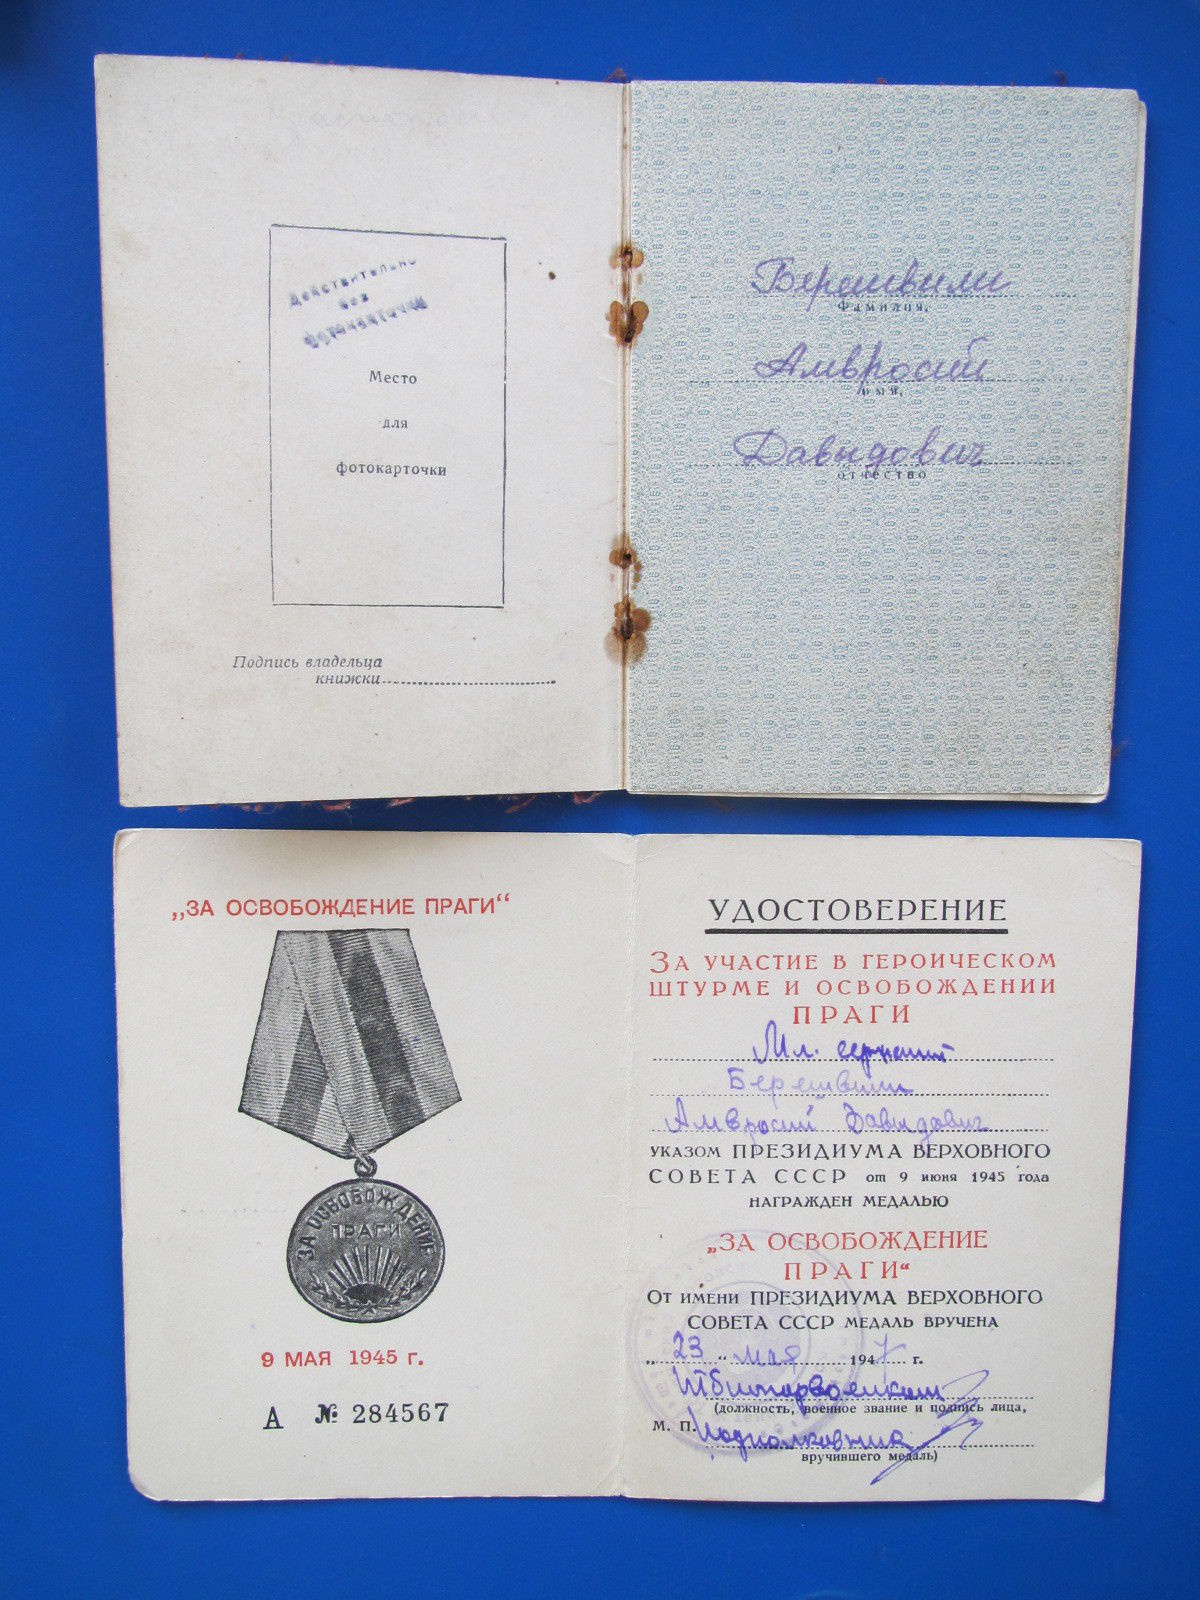 Действительно
без
фотокарточки
Место
для
фотокарточки
Подпись владельца
книжки
Берешвили
Фамилия,
Амвросий
имя,
Давыдович
отчество
„ЗА ОСВОБОЖДЕНИЕ ПРАГИ“
ЗА ОСВОБОЖДЕНИЕ
ПРАГИ
9 МАЯ 1945 г.
А № 284567
УДОСТОВЕРЕНИЕ
ЗА УЧАСТИЕ В ГЕРОИЧЕСКОМ
ШТУРМЕ И ОСВОБОЖДЕНИИ
ПРАГИ
Мл. сержант
Берешвили
Амвросий Давыдович
УКАЗОМ ПРЕЗИДИУМА ВЕРХОВНОГО
СОВЕТА СССР от 9 июня 1945 года
НАГРАЖДЕН МЕДАЛЬЮ
„ЗА ОСВОБОЖДЕНИЕ
ПРАГИ“
ОТ ИМЕНИ ПРЕЗИДИУМА ВЕРХОВНОГО
СОВЕТА СССР МЕДАЛЬ ВРУЧЕНА
„23“ мая 1947 г.
(должность, военное звание и подпись лица,
М. П. Подполковник
вручившего медаль)